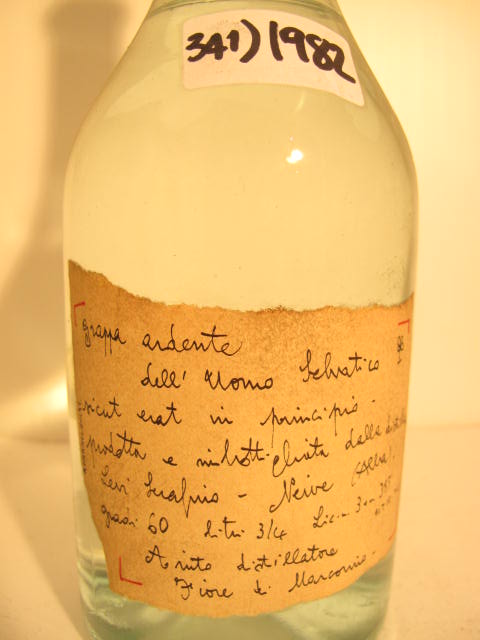 341) 1982
grappa ardente
dell' Uomo Selvatico
sicut erat in principio -
prodotta e imbottigliata dalla
Levi Serafino - Neive (Alba)
gradi 60 litri 3/4 Lic.
Aiuto distillatore
Fiore di Marcomio -